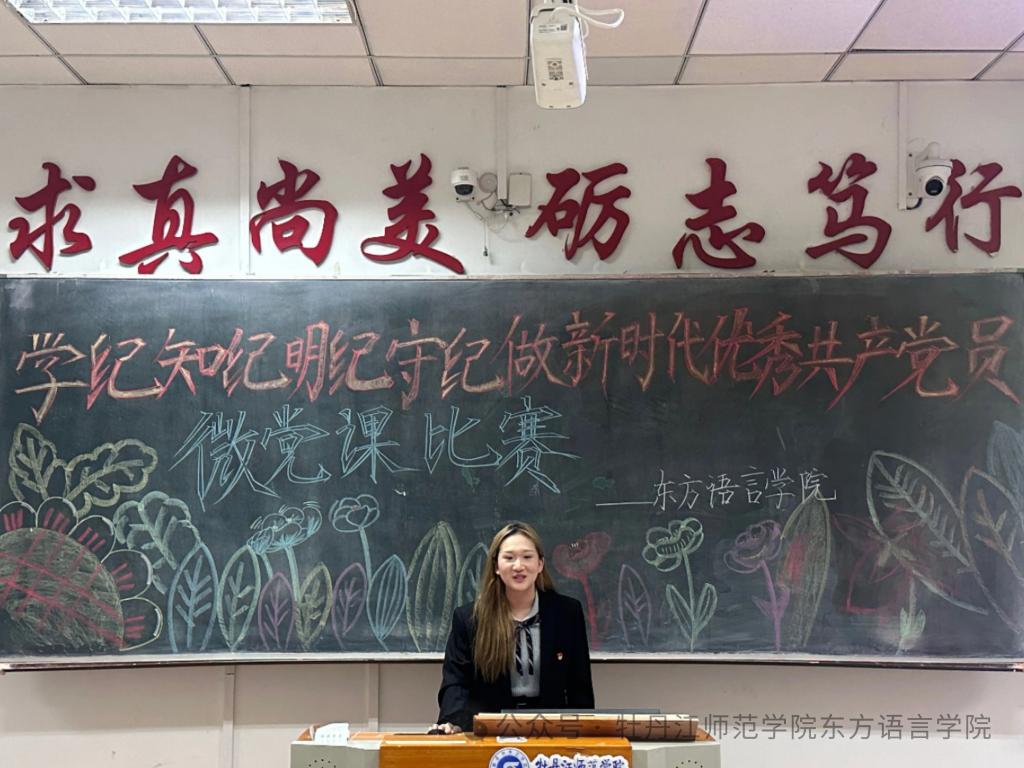 求真尚美砺志笃行
学纪知纪明纪守纪做新时代优秀共产党员
微党课比赛
——东方语言学院
公众号·牡丹江师范学院东方语言学院
牡丹江师范学院